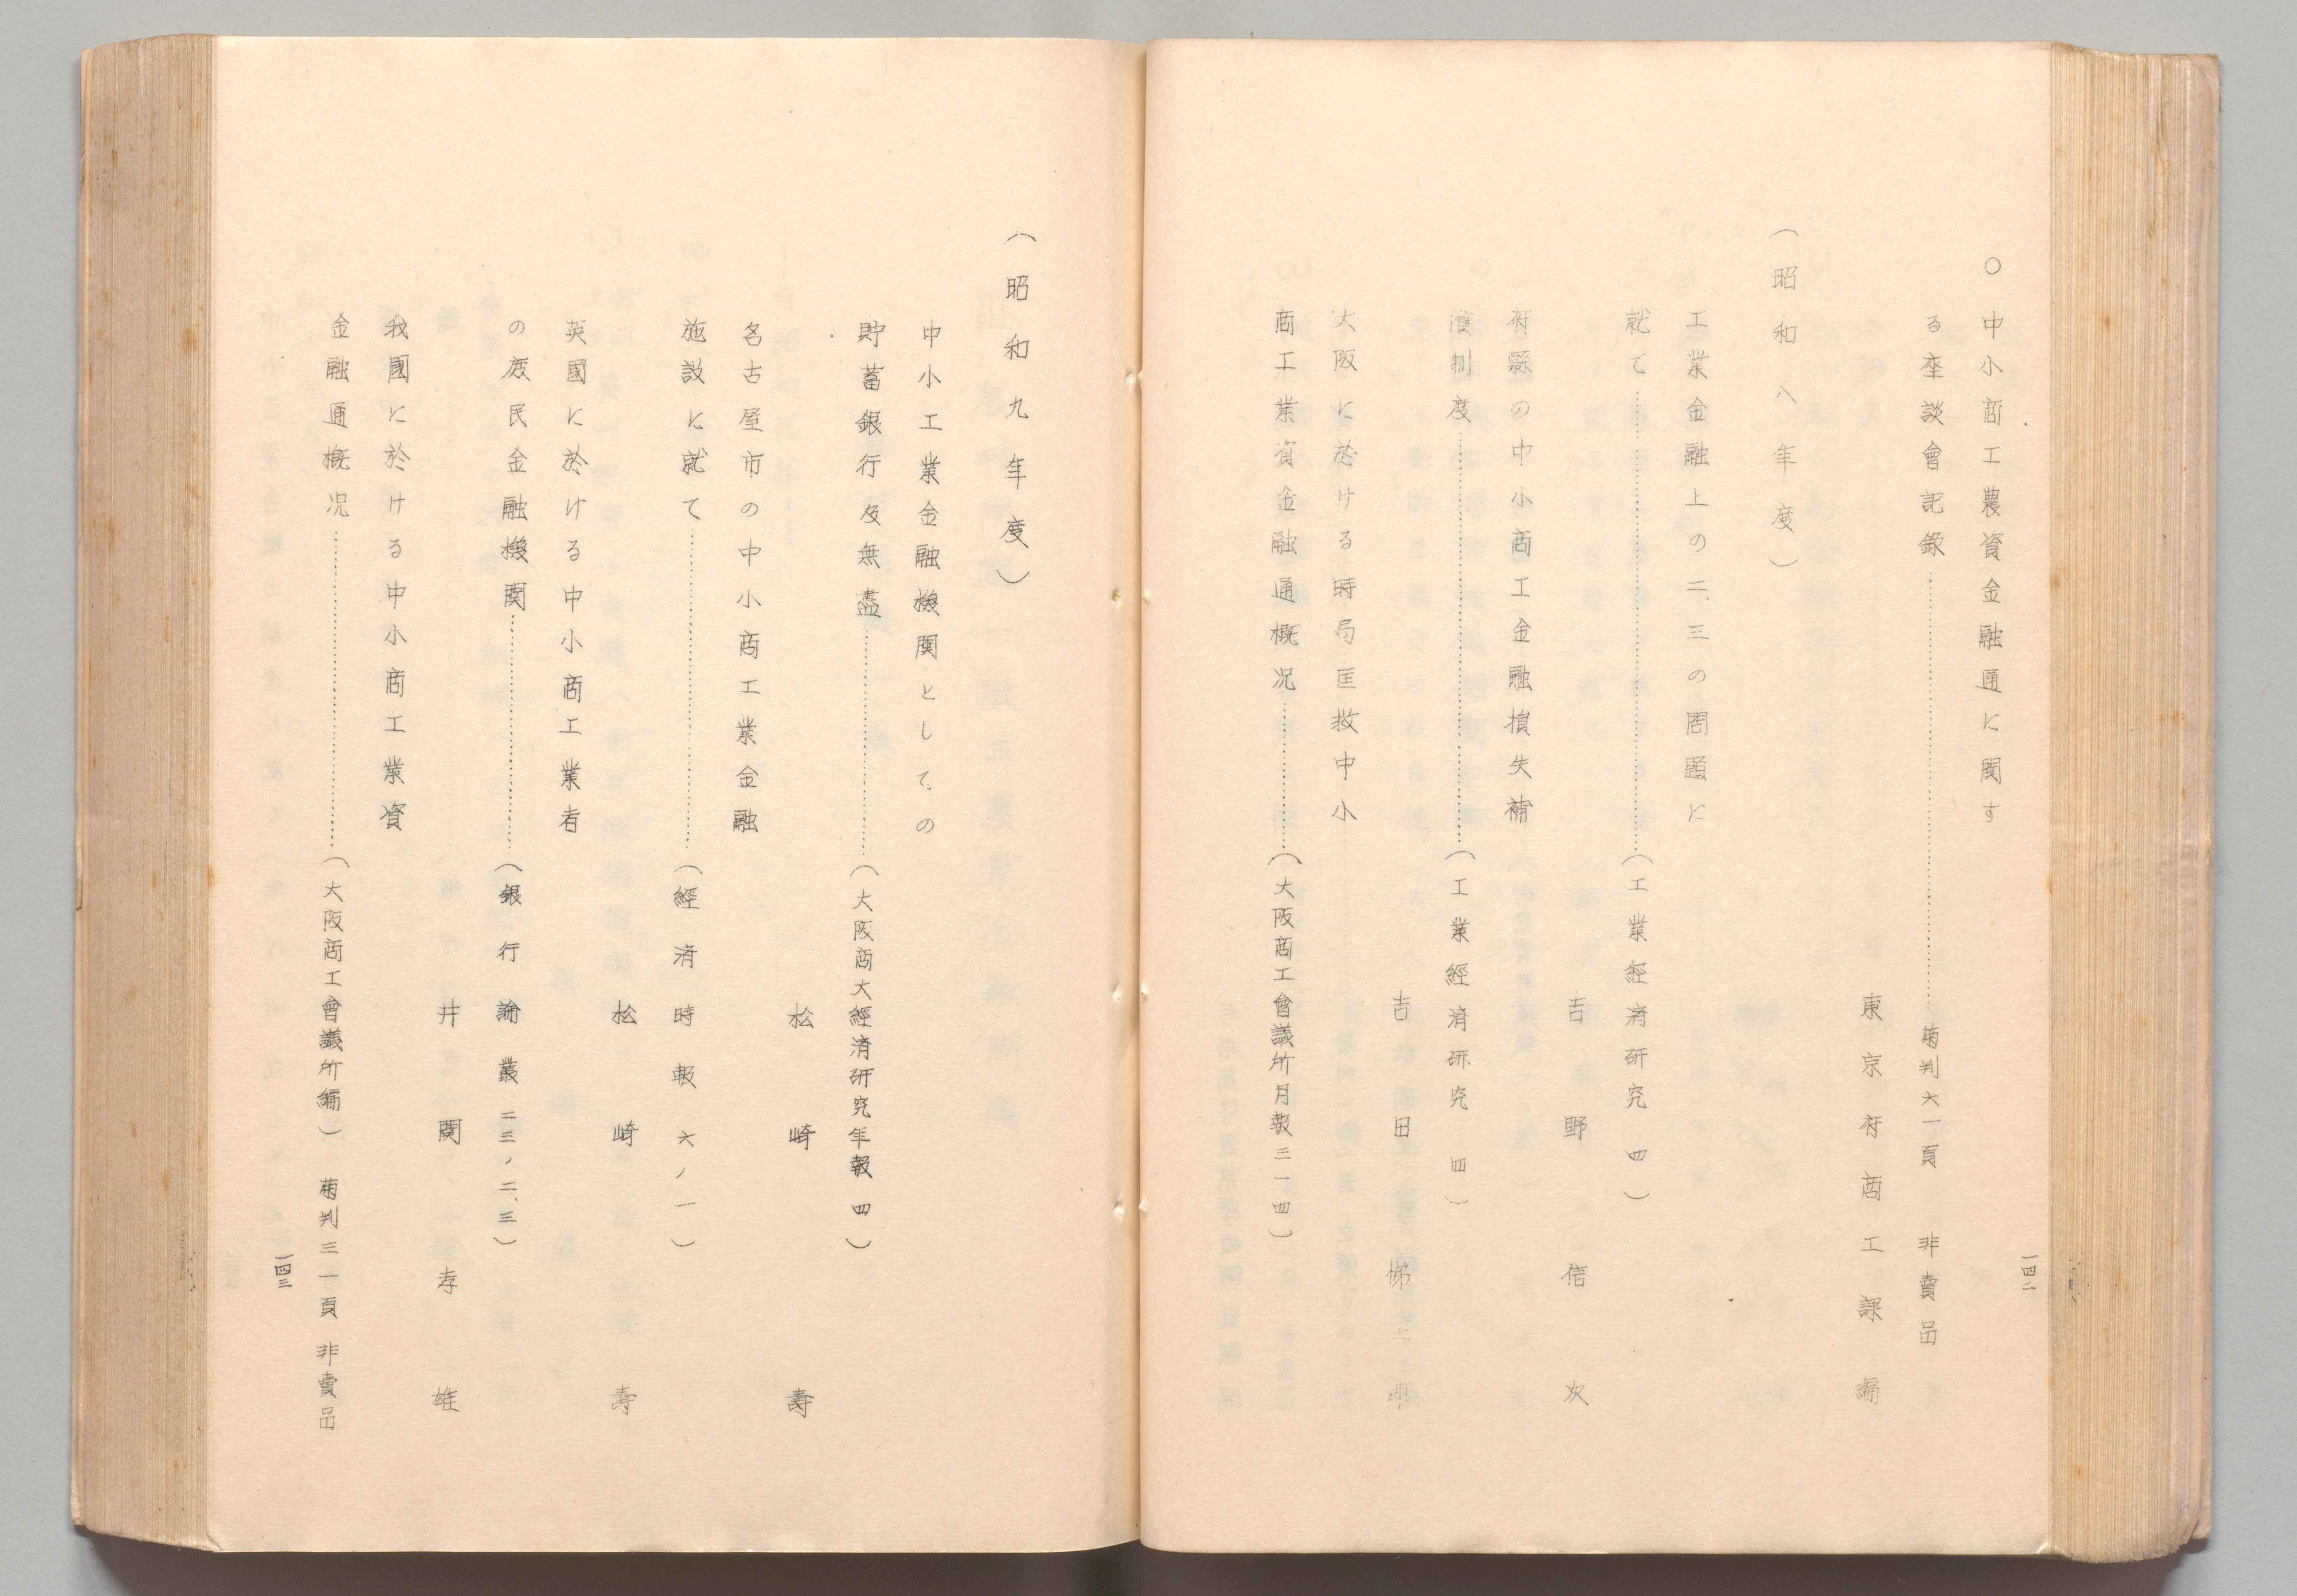 一四二
○中小商工農資金融通に関す
る座談會記錄……………菊判六一頁　非賣品
東京府商工課編
（昭和八年度）
工業金融上の二、三の問題に
就て……………（工業経済研究　四）
吉野信次
府縣の中小商工金融損失補
償制度……………（工業經済研究　四）
吉田悌
大阪に於ける時局匡救中小
商工業資金融通概況……………（大阪商工會議所月報三一四）
（昭和九年度）
中小工業金融機関としての
貯蓄銀行及無盡……………（大阪商大經済研究年報　四）
松崎壽
名古屋市の中小商工業金融
施設に就て……………（經済時報　六ノ一）
松崎壽
英國に於ける中小商工業者
の庶民金融機関……………（銀行論叢　二三ノ二、三）
井関孝雄
我國に於ける中小商工業資
金融通概況……………（大阪商工會議所編）　菊判三一頁　非賣品
一四三